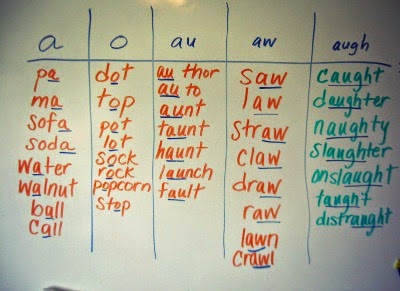 a o au aw augh
pa
ma
sofa
soda
water
walnut
ball
call
dot
top
pot
lot
sock
rock
popcorn
stop
au thor
au to
aunt
taunt
haunt
launch
fault
saw
law
straw
claw
draw
raw
lawn
crawl
caught
daughter
naughty
slaughter
onslaught
taught
distraught